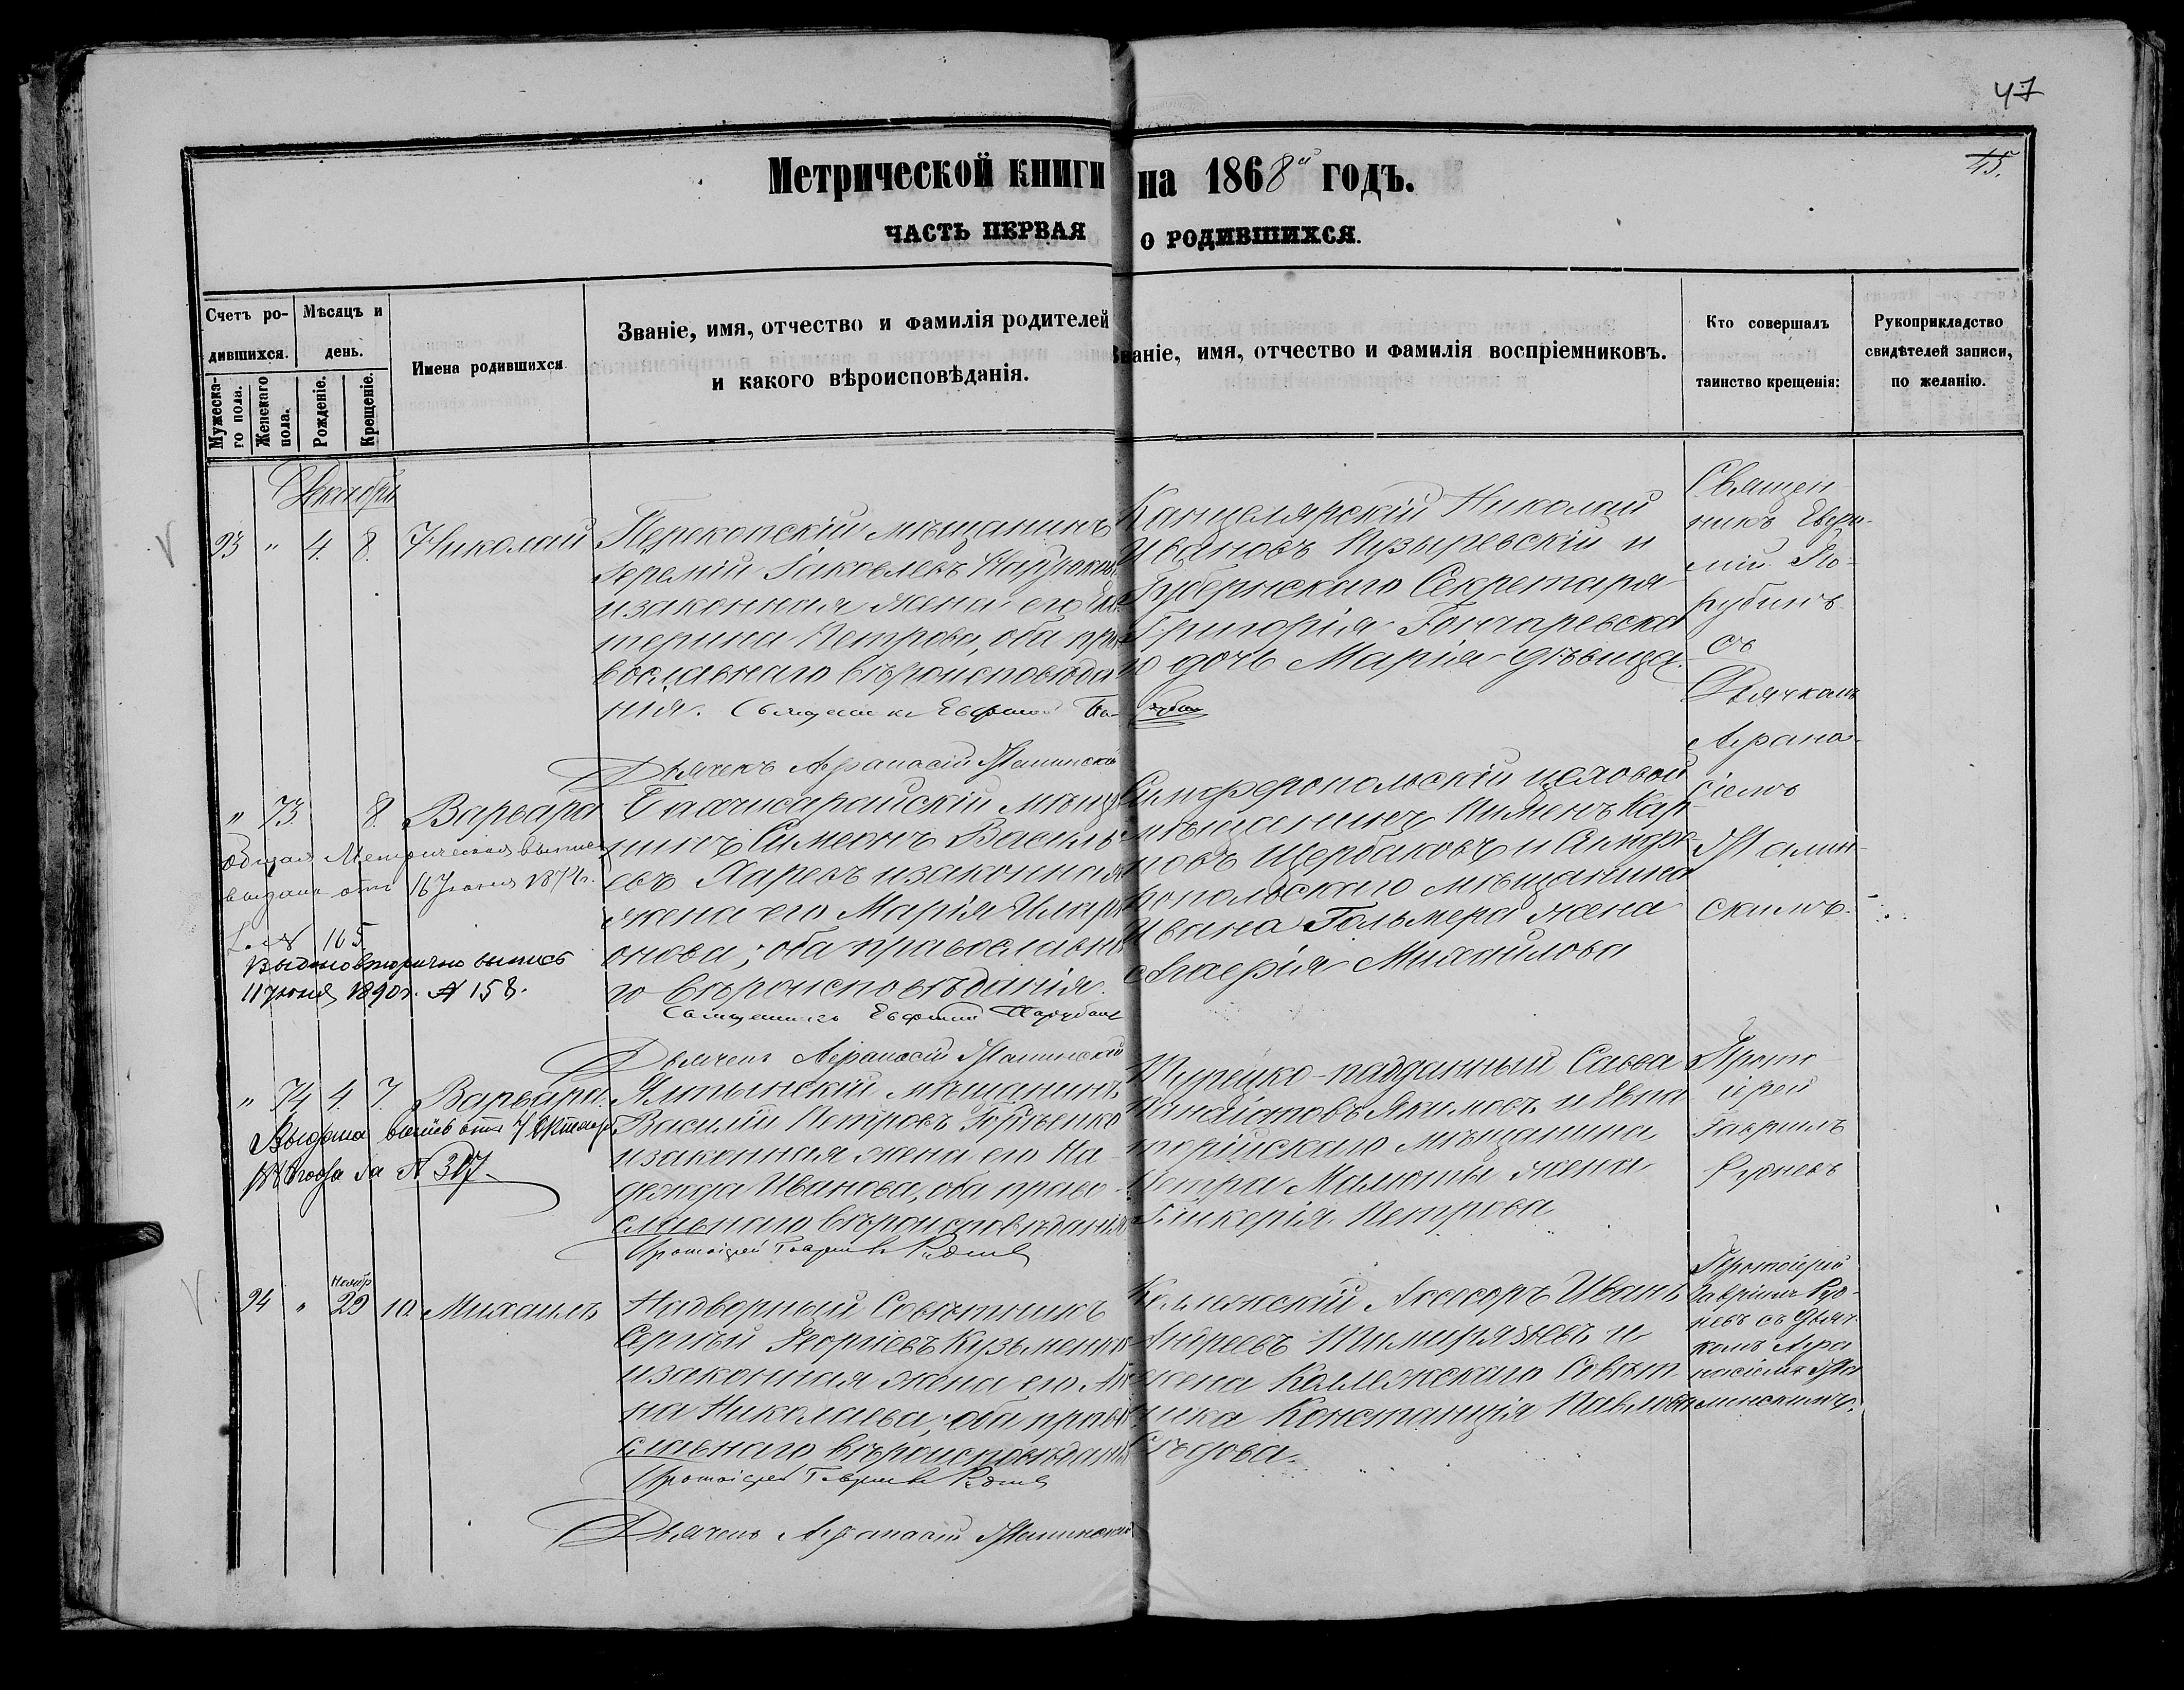 47
45.
Метрической книги на 1868й годъ.
ЧАСТЬ ПЕРВАЯ О РОДИВШИХСЯ.
Счетъ ро-
дившихся.
Мужеска-
го пола.
Женскаго
пола.
Мѣсяцъ и
день.
Рожденіе.
Крещеніе.
Имена родившихся
Званіе, имя, отчество и фамилія родителей
и какого вѣроисповѣданія.
Званіе, имя, отчество и фамилія воспріемниковъ.
Кто совершалъ
таинство крещенія:
Рукоприкладство
свидѣтелей записи,
по желанію.
Декабрь
23 " 4. 8. Николай
Перекопскій мѣщанинъ
Іеремій Іаковлевъ
и законная жена его Ека-
терина Петрова, оба пра-
вославнаго вѣроисповѣда-
нія. Священникъ Евфимій Па-
рубан
Дьячекъ Афанасій
Канцелярскій Николай
Ивановъ Пузыревскій и
Губернскаго Секретаря
Григорія Гончаревска
го дочь Марія дѣвица.
Священ-
никъ Евфи-
мій Па-
рубинъ
съ
Дьячкомъ
Афана-
сіемъ
скимъ.
" 73. 8. Варвара
Бахчисарайскій мѣща
нинъ Симеонъ Василь
евъ Харесъ и законная
жена его Марія Илари
онова; оба православна
го вѣроисповѣданія.
Священникъ Евфимій
Дьячекъ Афанасій
Симферопольскій цеховой
мѣщанинъ Пименъ Кар
повъ Щербаковъ и Симфе-
ропольскаго мѣщанина
Ивана Гольмера жена
Михаилова
выдана отъ 16 Іюня 1874г.
за № 105.
Выдано вторично выпись
11 Іюня 1890г. № 158.
" 74 4. 7. Варвара.
Ялтынскій мѣщанинъ
Василій Петровъ
и законная жена его На-
дежда Иванова, оба право-
славнаго вѣроисповѣданія
Протоіерей Гавріилъ Рудневъ
Турецко-подданный Савва
Панаіотовъ Якимовъ и Евпа
торійскаго мѣщанина
Петра Малюты жена
Гликерія Петрова
Прото
іерей
Гавріилъ
Рудневъ
Выдана выпись отъ 7 Октября
года за № 307.
Ноябр
24 " 29 10. Михаилъ
Надворный Совѣтникъ
Сергѣй Георгіевъ Кузьменко
и законная жена его Ан
на Николаева; оба право
славнаго вѣроисповѣданія
Протоіерей Гавріилъ Рудневъ
Дьячекъ Афанасій
Коллежскій Ассесоръ Иванъ
Андреевъ Тимирязевъ и
жена Коллежскаго Совѣт
ника Констанція Павлова
Сѣдова.
Протоіерей
Гавріилъ Руд-
невъ съ Дьяч-
комъ Афа
насіемъ